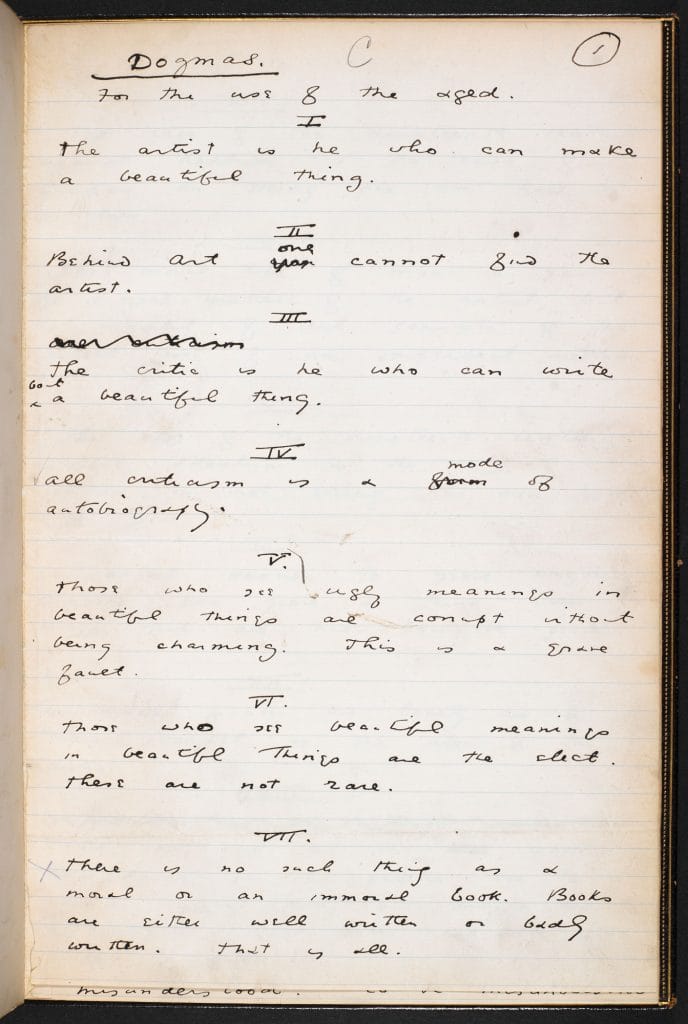 Dogmas. C 1
For the use of the aged.
I
The artist is he who can make
a beautiful thing.
II
one
Behind Art you cannot find the
artist.
III
The critic is he who can write
bout
a beautiful thing.
IV
mode
All criticism is a form of
autobiography.
V.
Those who see ugly meanings in
beautiful things are corrupt without
being charming. This is a grave
fault.
VI.
Those who see beautiful meanings
in beautiful things are the elect.
These are not rare.
VII.
X There is no such thing as a
moral or an immoral book. Books
are either well written or badly
written. That is all.
misunderstood. to be misunderstood